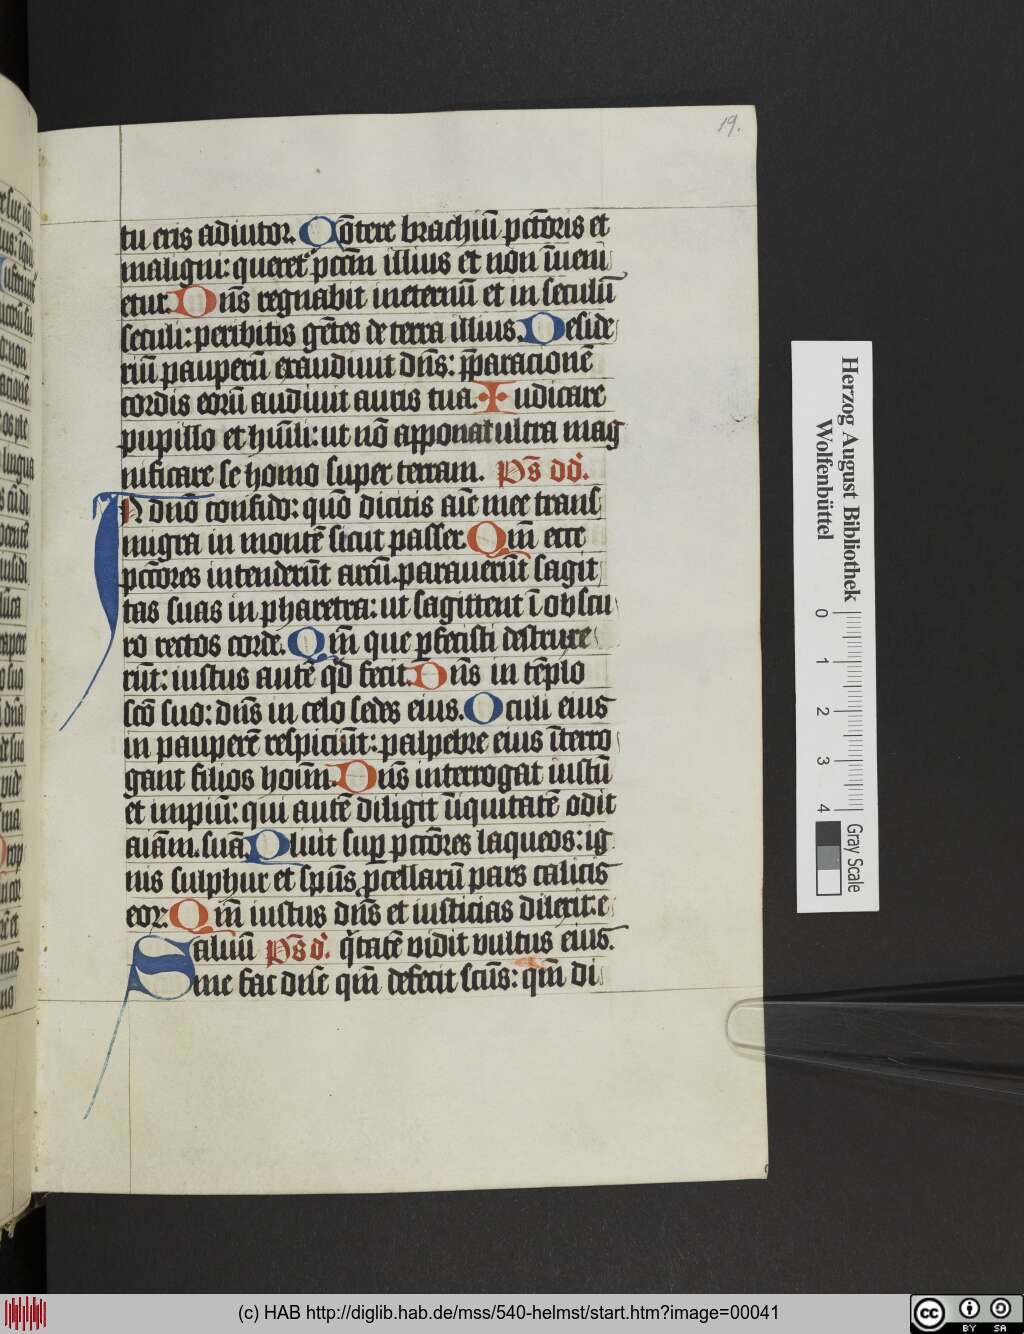 19.
tu eris adiutor. Cōtere brachiū pctōris et
maligni: queret᷑ pctm̄ illius et non īueni
etur. Dn̄s regnabit ineternū et in seculū
seculi: peribitis gētes de terra illius. Deside
riū pauperū exaudiuit dn̄s: p̄paracionē
cordis eorū audiuit auris tua. Iudicare
pupillo et hūili: ut nō apponat ultra mag
nificare se homo super terram. Ps̄ dd̄.
IN dnō confido: quō dicitis aīe mee trans
migra in montē sicut passer. Qm̄ ecce
pctōres intenderūt arcū. parauerūt sagit
tas suas in pharetra: ut sagittent ī obscu
ro rectos corde. Qm̄ que ꝑfecisti destruxe
rūt: iustus autē qd̄ fecit. Dn̄s in tēplo
scō suo: dn̄s in celo sedes eius. Oculi eius
in pauperē respiciūt: palpebre eius īterro
gant filios hoīm. Dn̄s interrogat iustū
et impiū: qui autē diligit īiquitatē odit
aīam. suā. Pluit suꝑ pctōres laqueos: ig
nis sulphur et spūs ꝓcellarū pars calicis
eoꝝ. Qm̄ iustus dn̄s et iusticias dilexit: e
Saluū Ps̄ d. q̄tatē vidit vultus eius.
me fac dn̄e qm̄ defecit scūs: qm̄ di
Herzog August Bibliothek
Wolfenbüttel
0 1 2 3 4
Gray Scale
(c) HAB http://diglib.hab.de/mss/540-helmst/start.htm?image=00041
cc BY SA